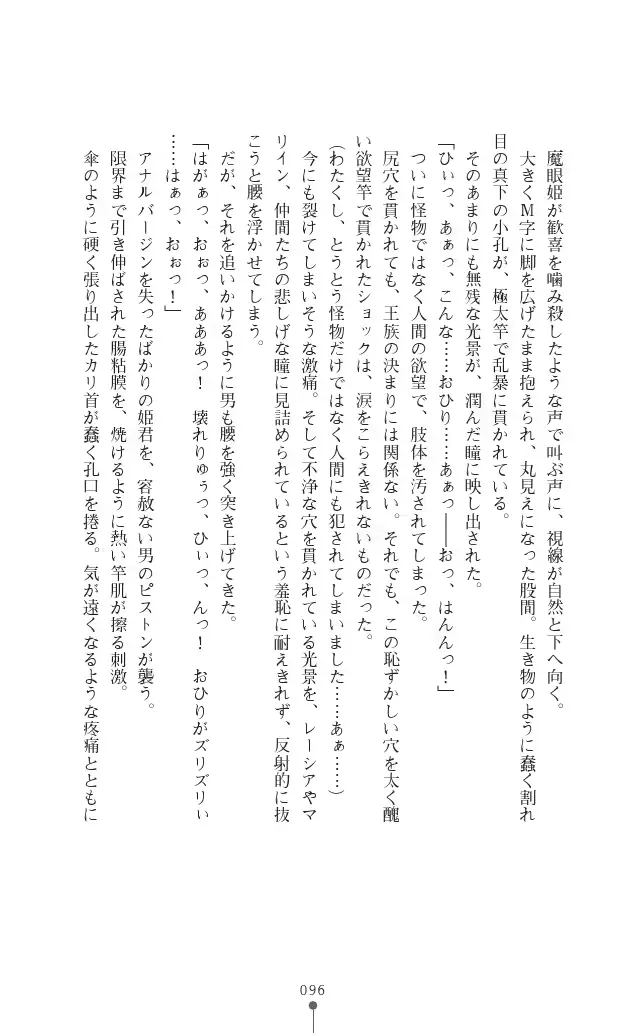 魔眼姫が歓喜を噛み殺したような声で叫ぶ声に、視線が自然と下へ向く。
大きくM字に脚を広げたまま抱えられ、丸見えになった股間。生き物のように蠢く割れ
目の真下の小孔が、極太竿で乱暴に貫かれている。
そのあまりにも無残な光景が、潤んだ瞳に映し出された。
「ひぃっ、あぁっ、こんな……おひり……あぁっ――おっ、はんんっ！」
ついに怪物ではなく人間の欲望で、肢体を汚されてしまった。
尻穴を貫かれても、王族の決まりには関係ない。それでも、この恥ずかしい穴を太く醜
い欲望竿で貫かれたショックは、涙をこらえきれないものだった。
（わたくし、とうとう怪物だけではなく人間にも犯されてしまいました……あぁ……）
今にも裂けてしまいそうな激痛。そして不浄な穴を貫かれている光景を、レーシアやマ
リイン、仲間たちの悲しげな瞳に見詰められているという羞恥に耐えきれず、反射的に抜
こうと腰を浮かせてしまう。
だが、それを追いかけるように男も腰を強く突き上げてきた。
「はがぁっ、おぉっ、あああっ！　壊れりゅぅっ、ひぃっ、んっ！　おひりがズリズリぃ
……はぁっ、おぉっ！」
アナルバージンを失ったばかりの姫君を、容赦ない男のピストンが襲う。
限界まで引き伸ばされた腸粘膜を、焼けるように熱い竿肌が擦る刺激。
傘のように硬く張り出したカリ首が蠢く孔口を捲る。気が遠くなるような疼痛とともに
096